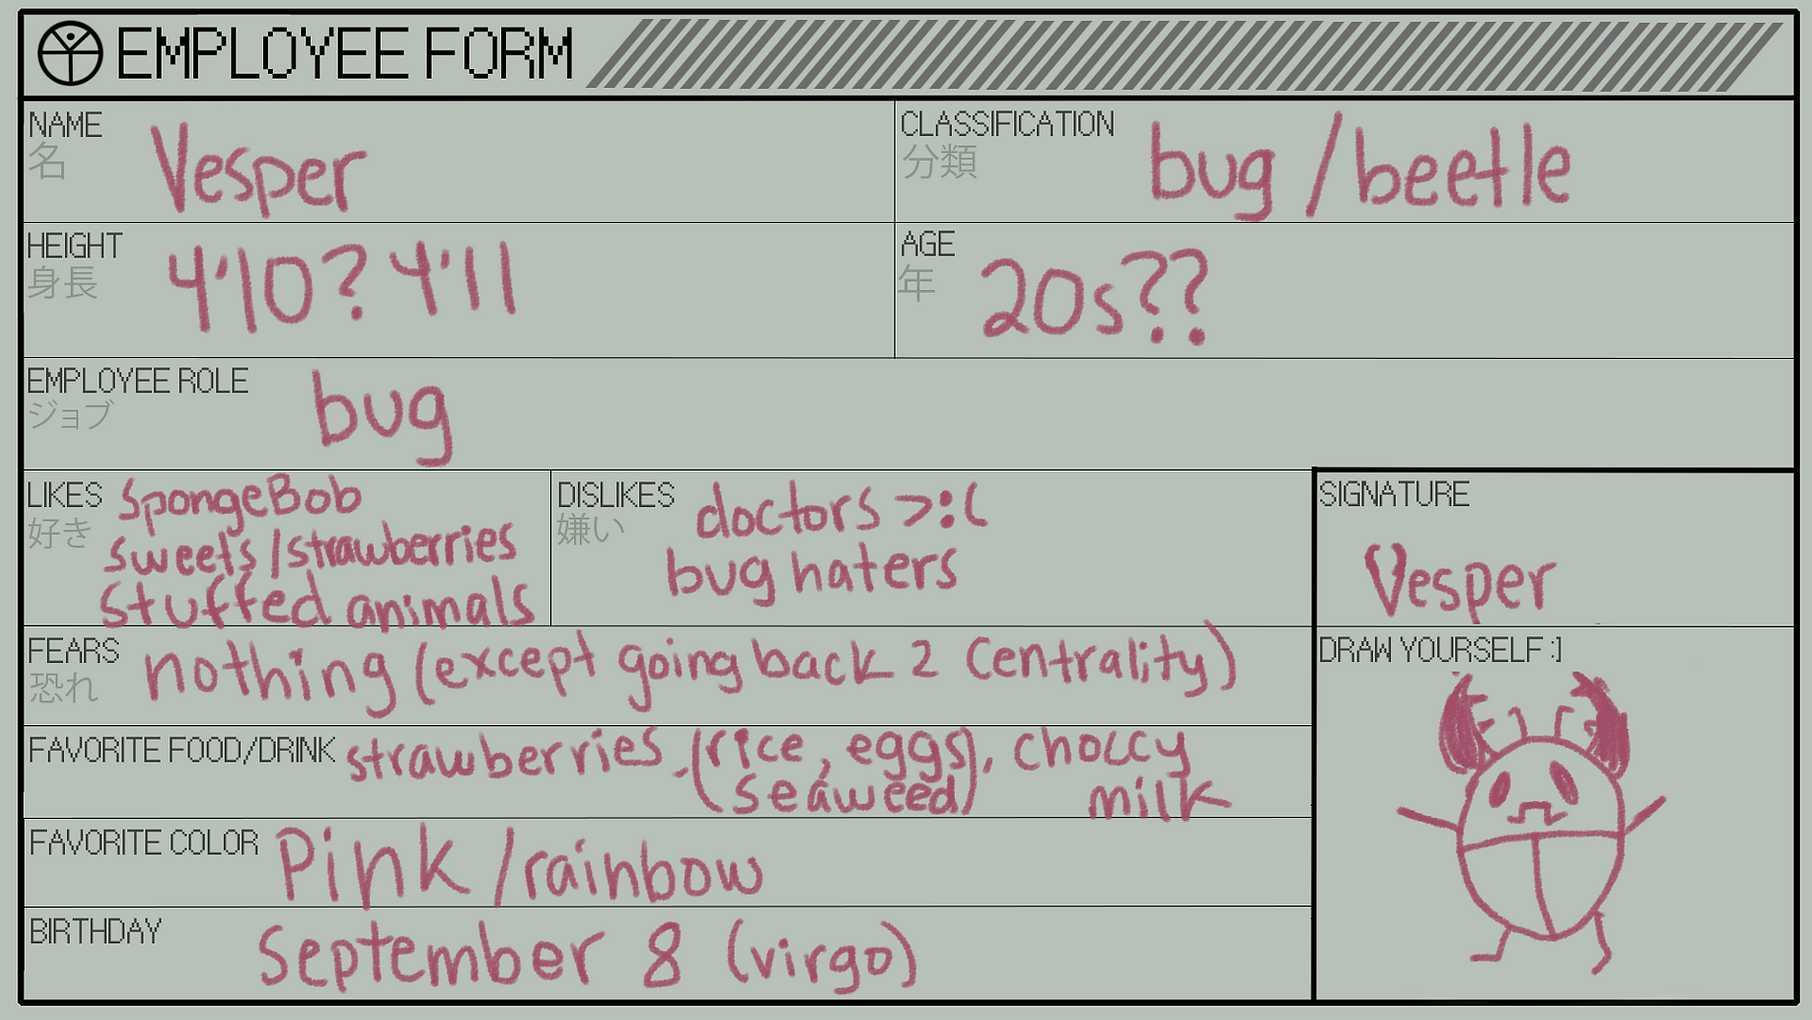 EMPLOYEE FORM
NAME
名
Vesper
CLASSIFICATION
分類
bug / beetle
HEIGHT
身長
4'10? 4'11
AGE
年
20s??
EMPLOYEE ROLE
ジョブ
bug
LIKES
好き
SpongeBob
sweets/strawberries
stuffed animals
DISLIKES
嫌い
doctors >:(
bug haters
SIGNATURE
Vesper
FEARS
恐れ
nothing (except going back 2 Centrality)
DRAW YOURSELF :]
FAVORITE FOOD/DRINK
strawberries, (rice, eggs, choccy
seaweed) milk
FAVORITE COLOR
Pink/rainbow
BIRTHDAY
September 8 (virgo)